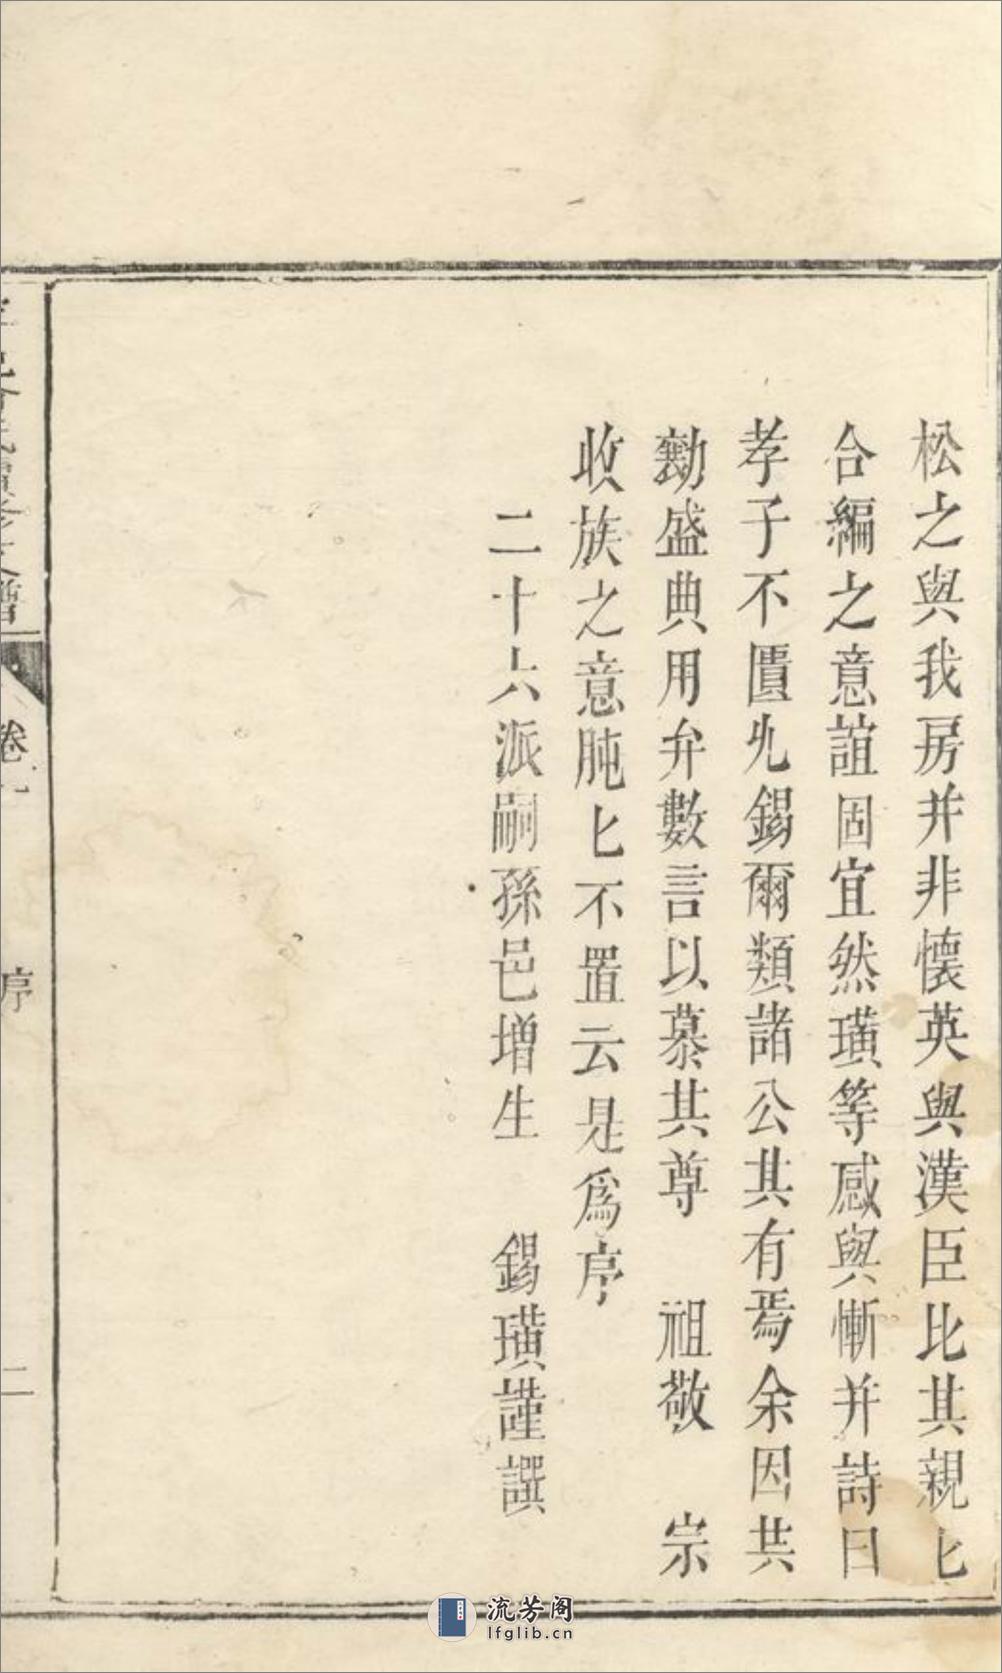 松之與我房并非懷英與漢臣比其親匕
合編之意誼固宜然璜等感與慚并詩曰
孝子不匱永錫爾類諸公其有焉余因共
勷盛典用弁數言以慕其尊　祖敬　宗
收族之意肫匕不置云是爲序
二十六派嗣孫邑增生　錫璜謹譔
譜
卷一
序
二
流芳阁
lfglib.cn